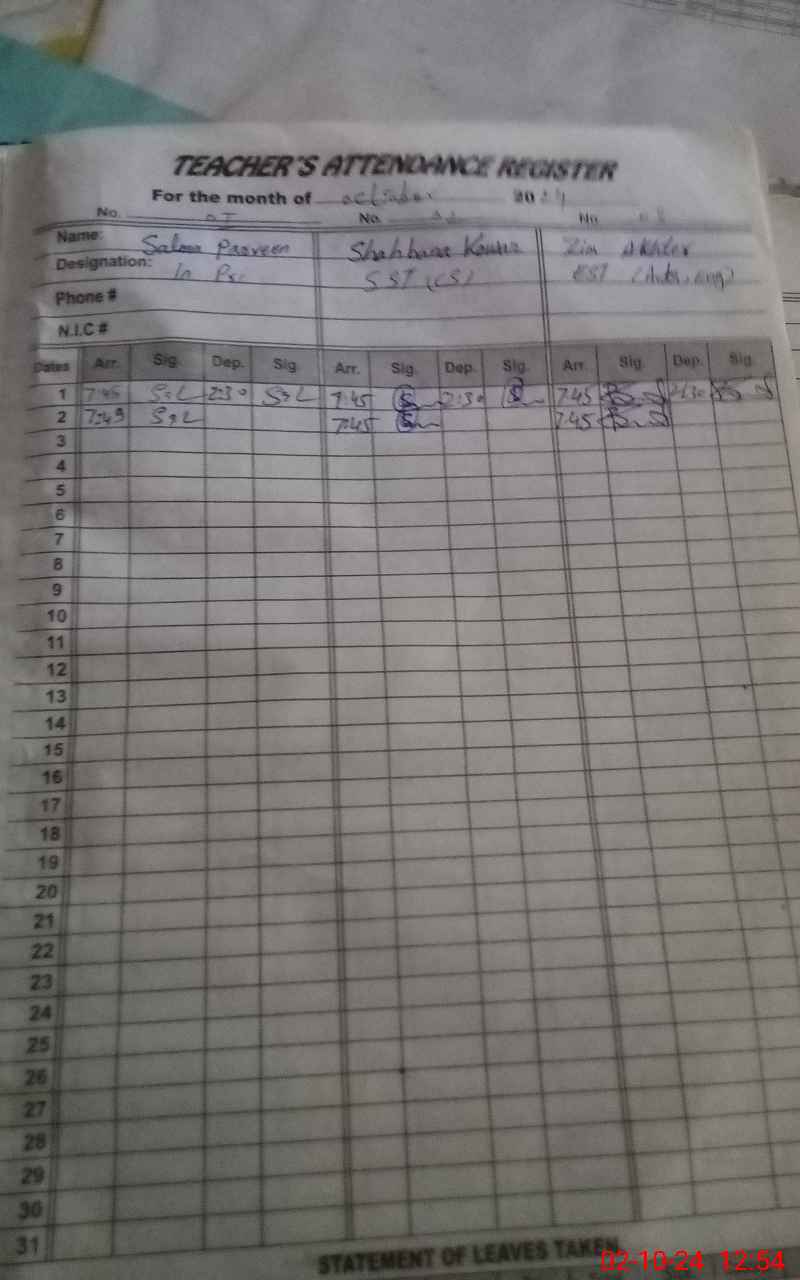 TEACHER'S ATTENDANCE REGISTER
For the month of october 2024
No. 01 No. No.
Name: Salma Parveen Shahbana Kousar Akhter
Designation: In SST (CS) EST
Phone #
N.I.C #
Dates Arr. Sig. Dep. Sig. Arr. Sig. Dep. Sig. Arr. Sig. Dep. Sig.
1 7:45 2:30 7:45 2:30 7:45 2:30
2 7:45 7:45 7:45
3
4
5
6
7
8
9
10
11
12
13
14
15
16
17
18
19
20
21
22
23
24
25
26
27
28
29
30
31
STATEMENT OF LEAVES TAKEN
02-10-24 12:54